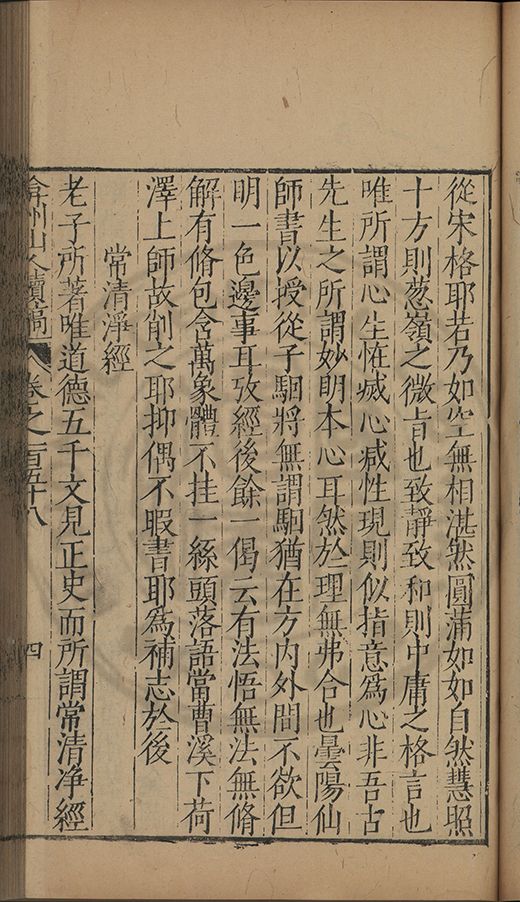 從宋格耶若乃如空無相湛然圓蒲如如自然慧照
十方則葱嶺之微旨也致靜致和則中庸之格言也
唯所謂心生性滅心滅性現則似指意爲心非吾古
先生之所謂妙明本心耳然於理無弗合也曇陽仙
師書以授從子駰將無謂駰猶在方内外間不欲但
明一色邊事耳攷經後餘一偈云有法悟無法無脩
解有脩包含萬象體不挂一絲頭落語當曹溪下荷
澤上師故削之耶抑偶不暇書耶爲補志於後
常清淨經
老子所著唯道德五千文見正史而所謂常清净經
弇州山人續稿
卷之一百五十八
四